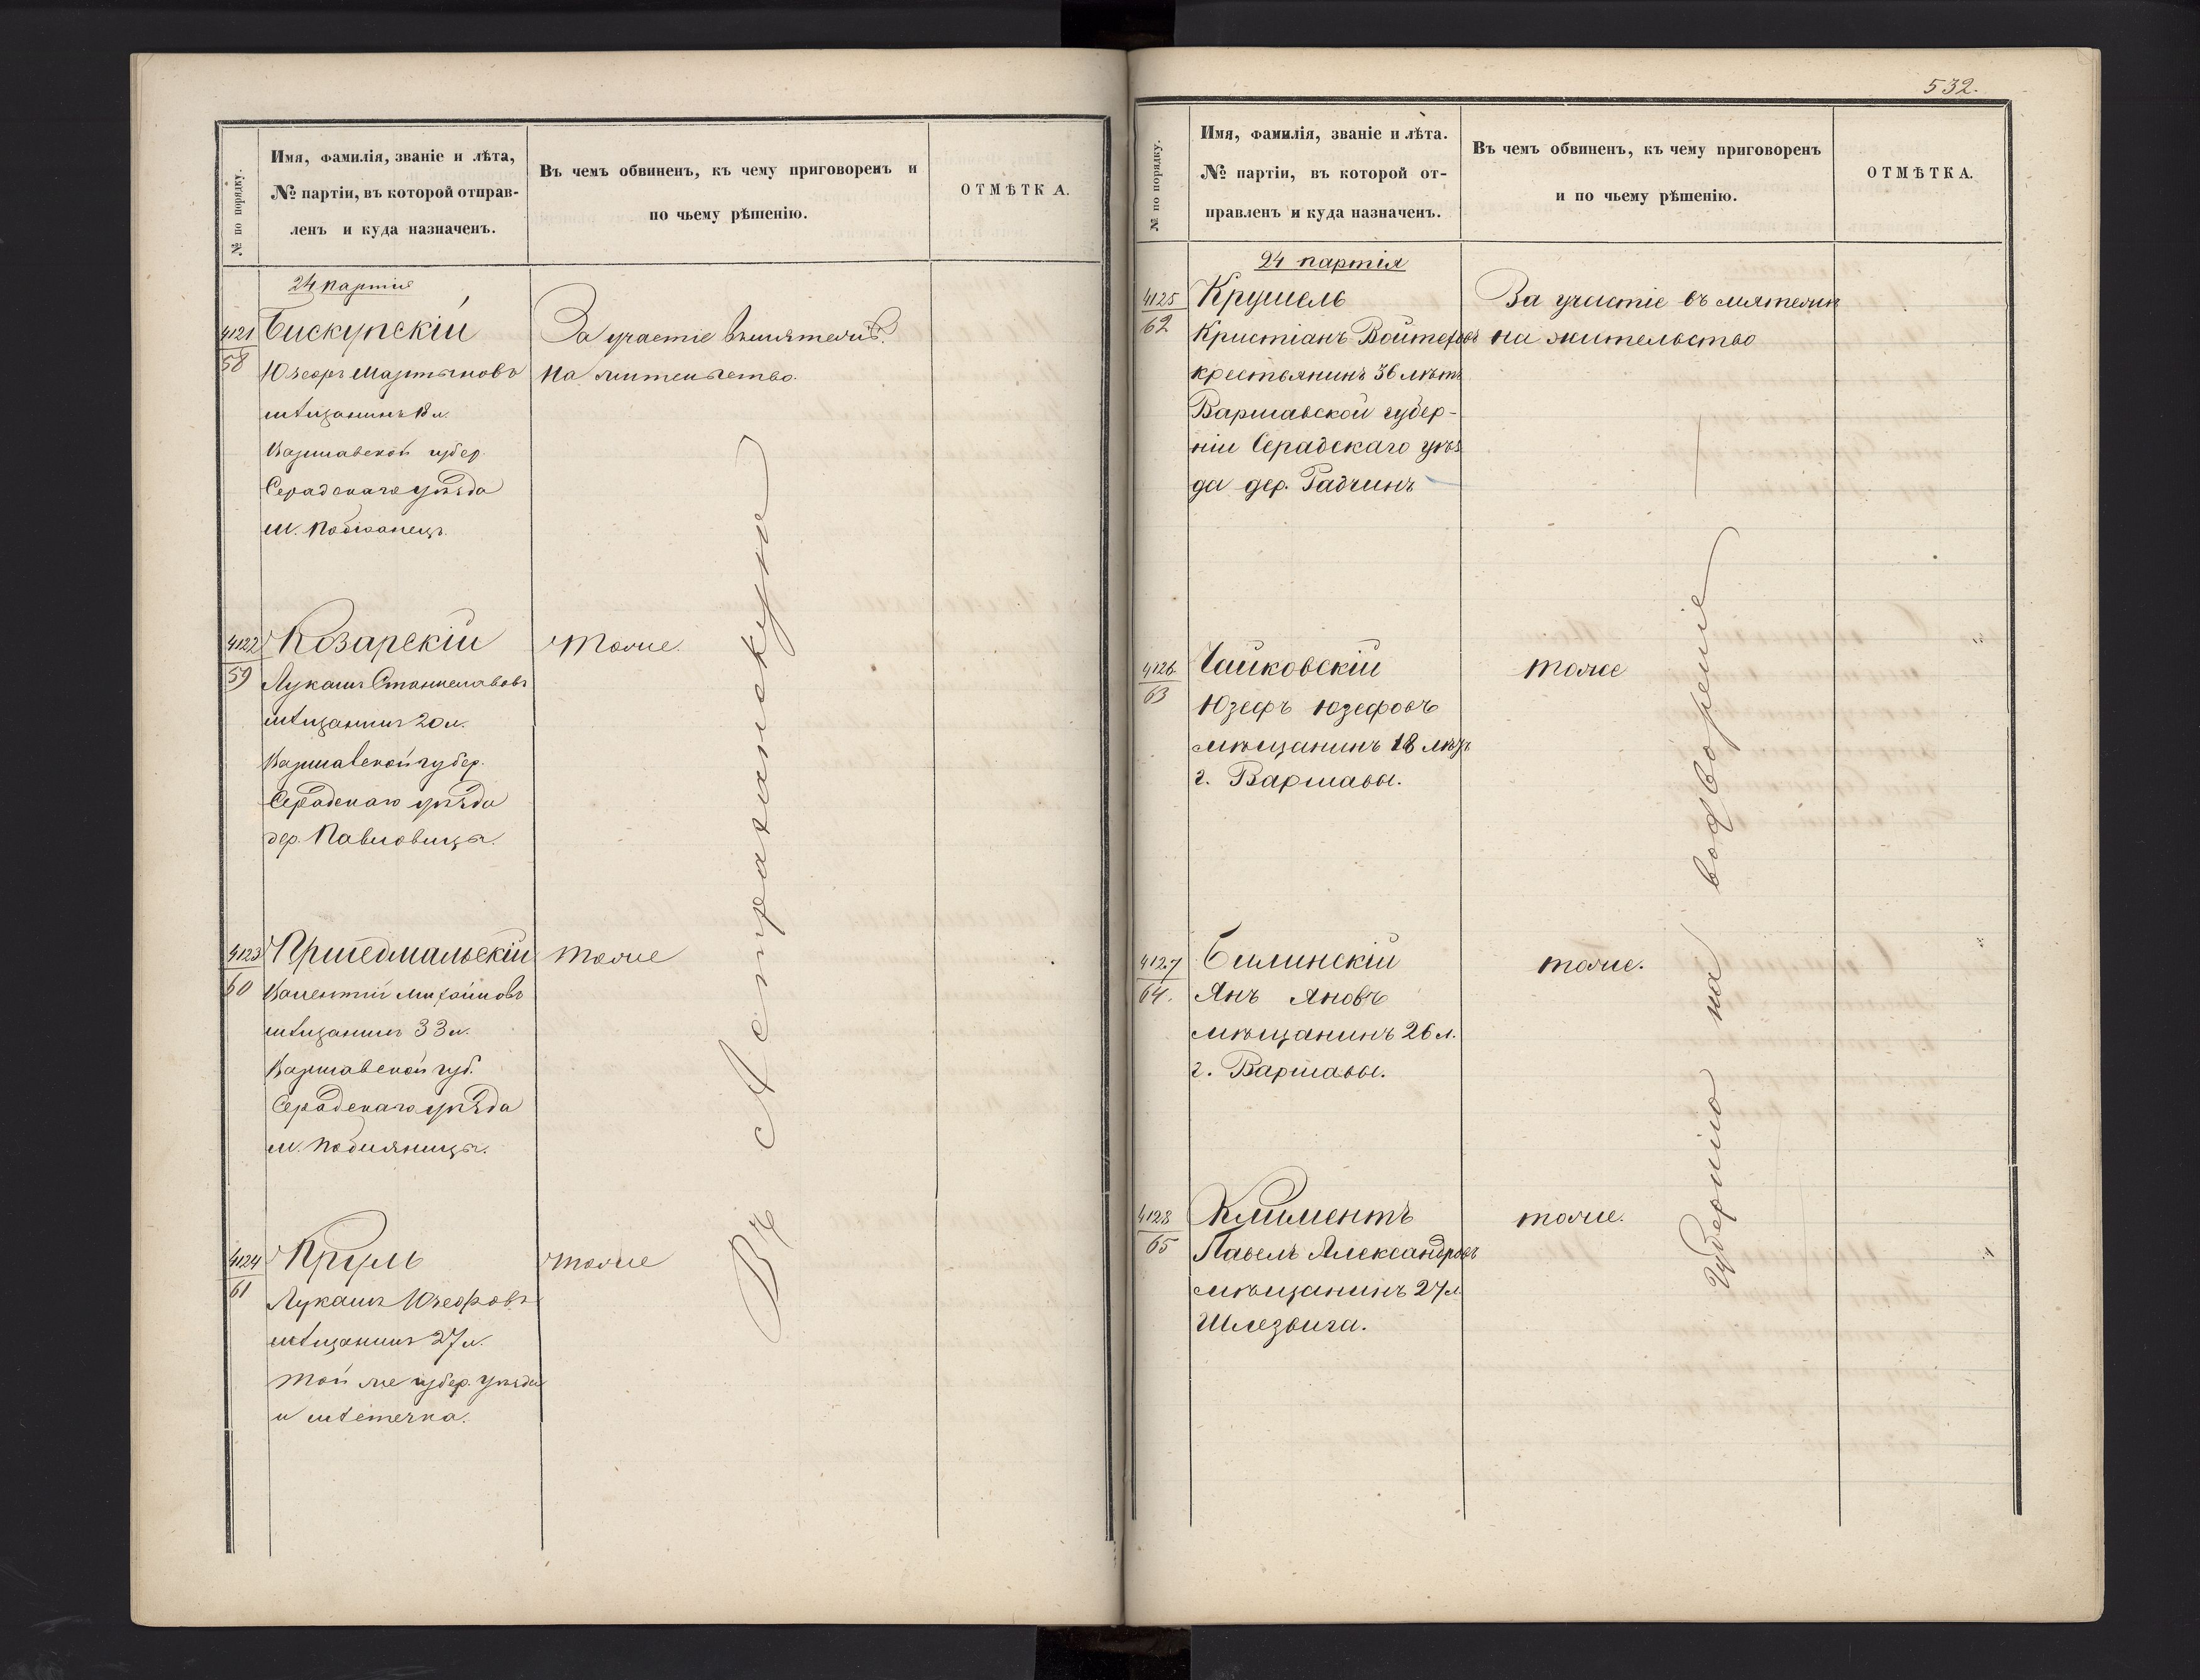 № по порядку.
Имя, фамилія, званіе и лѣта,
№ партіи, въ которой отправ-
ленъ и куда назначенъ.
Въ чемъ обвиненъ, къ чему приговоренъ и
по чьему рѣшенію.
ОТМѢТКА.
24 партія
4121
58
Бискупскій
За участіе въ мятежѣ.
Юзефъ Мартиновъ
На жительство.
мѣщанинъ 18 л.
Варшавской губер.
Серадскаго уѣзда
м.
4122
59
Козарскій
тоже.
Лукашъ Станиславовъ
мѣщанинъ 20 л.
Варшавской губер.
Серадскаго уѣзда
дер. Павловица.
4123
60
Пршедмальскій
тоже
Валентій Михаиловъ
мѣщанинъ 33 л.
Варшавской губ.
Серадскаго уѣзда
м. Пабіяница.
4124
61
Круль
тоже
Лукашъ Юзефовъ
мѣщанинъ 27 л.
той же губер. уѣзда
и мѣстечка.
Въ Астраханскую
532.
№ по порядку.
Имя, фамилія, званіе и лѣта.
№ партіи, въ которой от-
правленъ и куда назначенъ.
Въ чемъ обвиненъ, къ чему приговоренъ
и по чьему рѣшенію.
ОТМѢТКА.
24 партія
4125
62
Крушель
За участіе въ мятежѣ
Кристіанъ Войтеховъ
на жительство
крестьянинъ 36 лѣтъ
Варшавской губер-
ніи Серадскаго уѣз
да дер. Гадчинъ
4126.
63
Чайковскій
тоже
Юзефъ Юзефовъ
мѣщанинъ 18 лѣтъ
г. Варшавы.
4127
64.
Билинскій
тоже.
Янъ Яновъ
мѣщанинъ 26 л.
г. Варшавы.
4128
65
Климентъ
тоже.
Павелъ Александровъ
мѣщанинъ 27 л
Шлезвига.
губернію на водвореніе